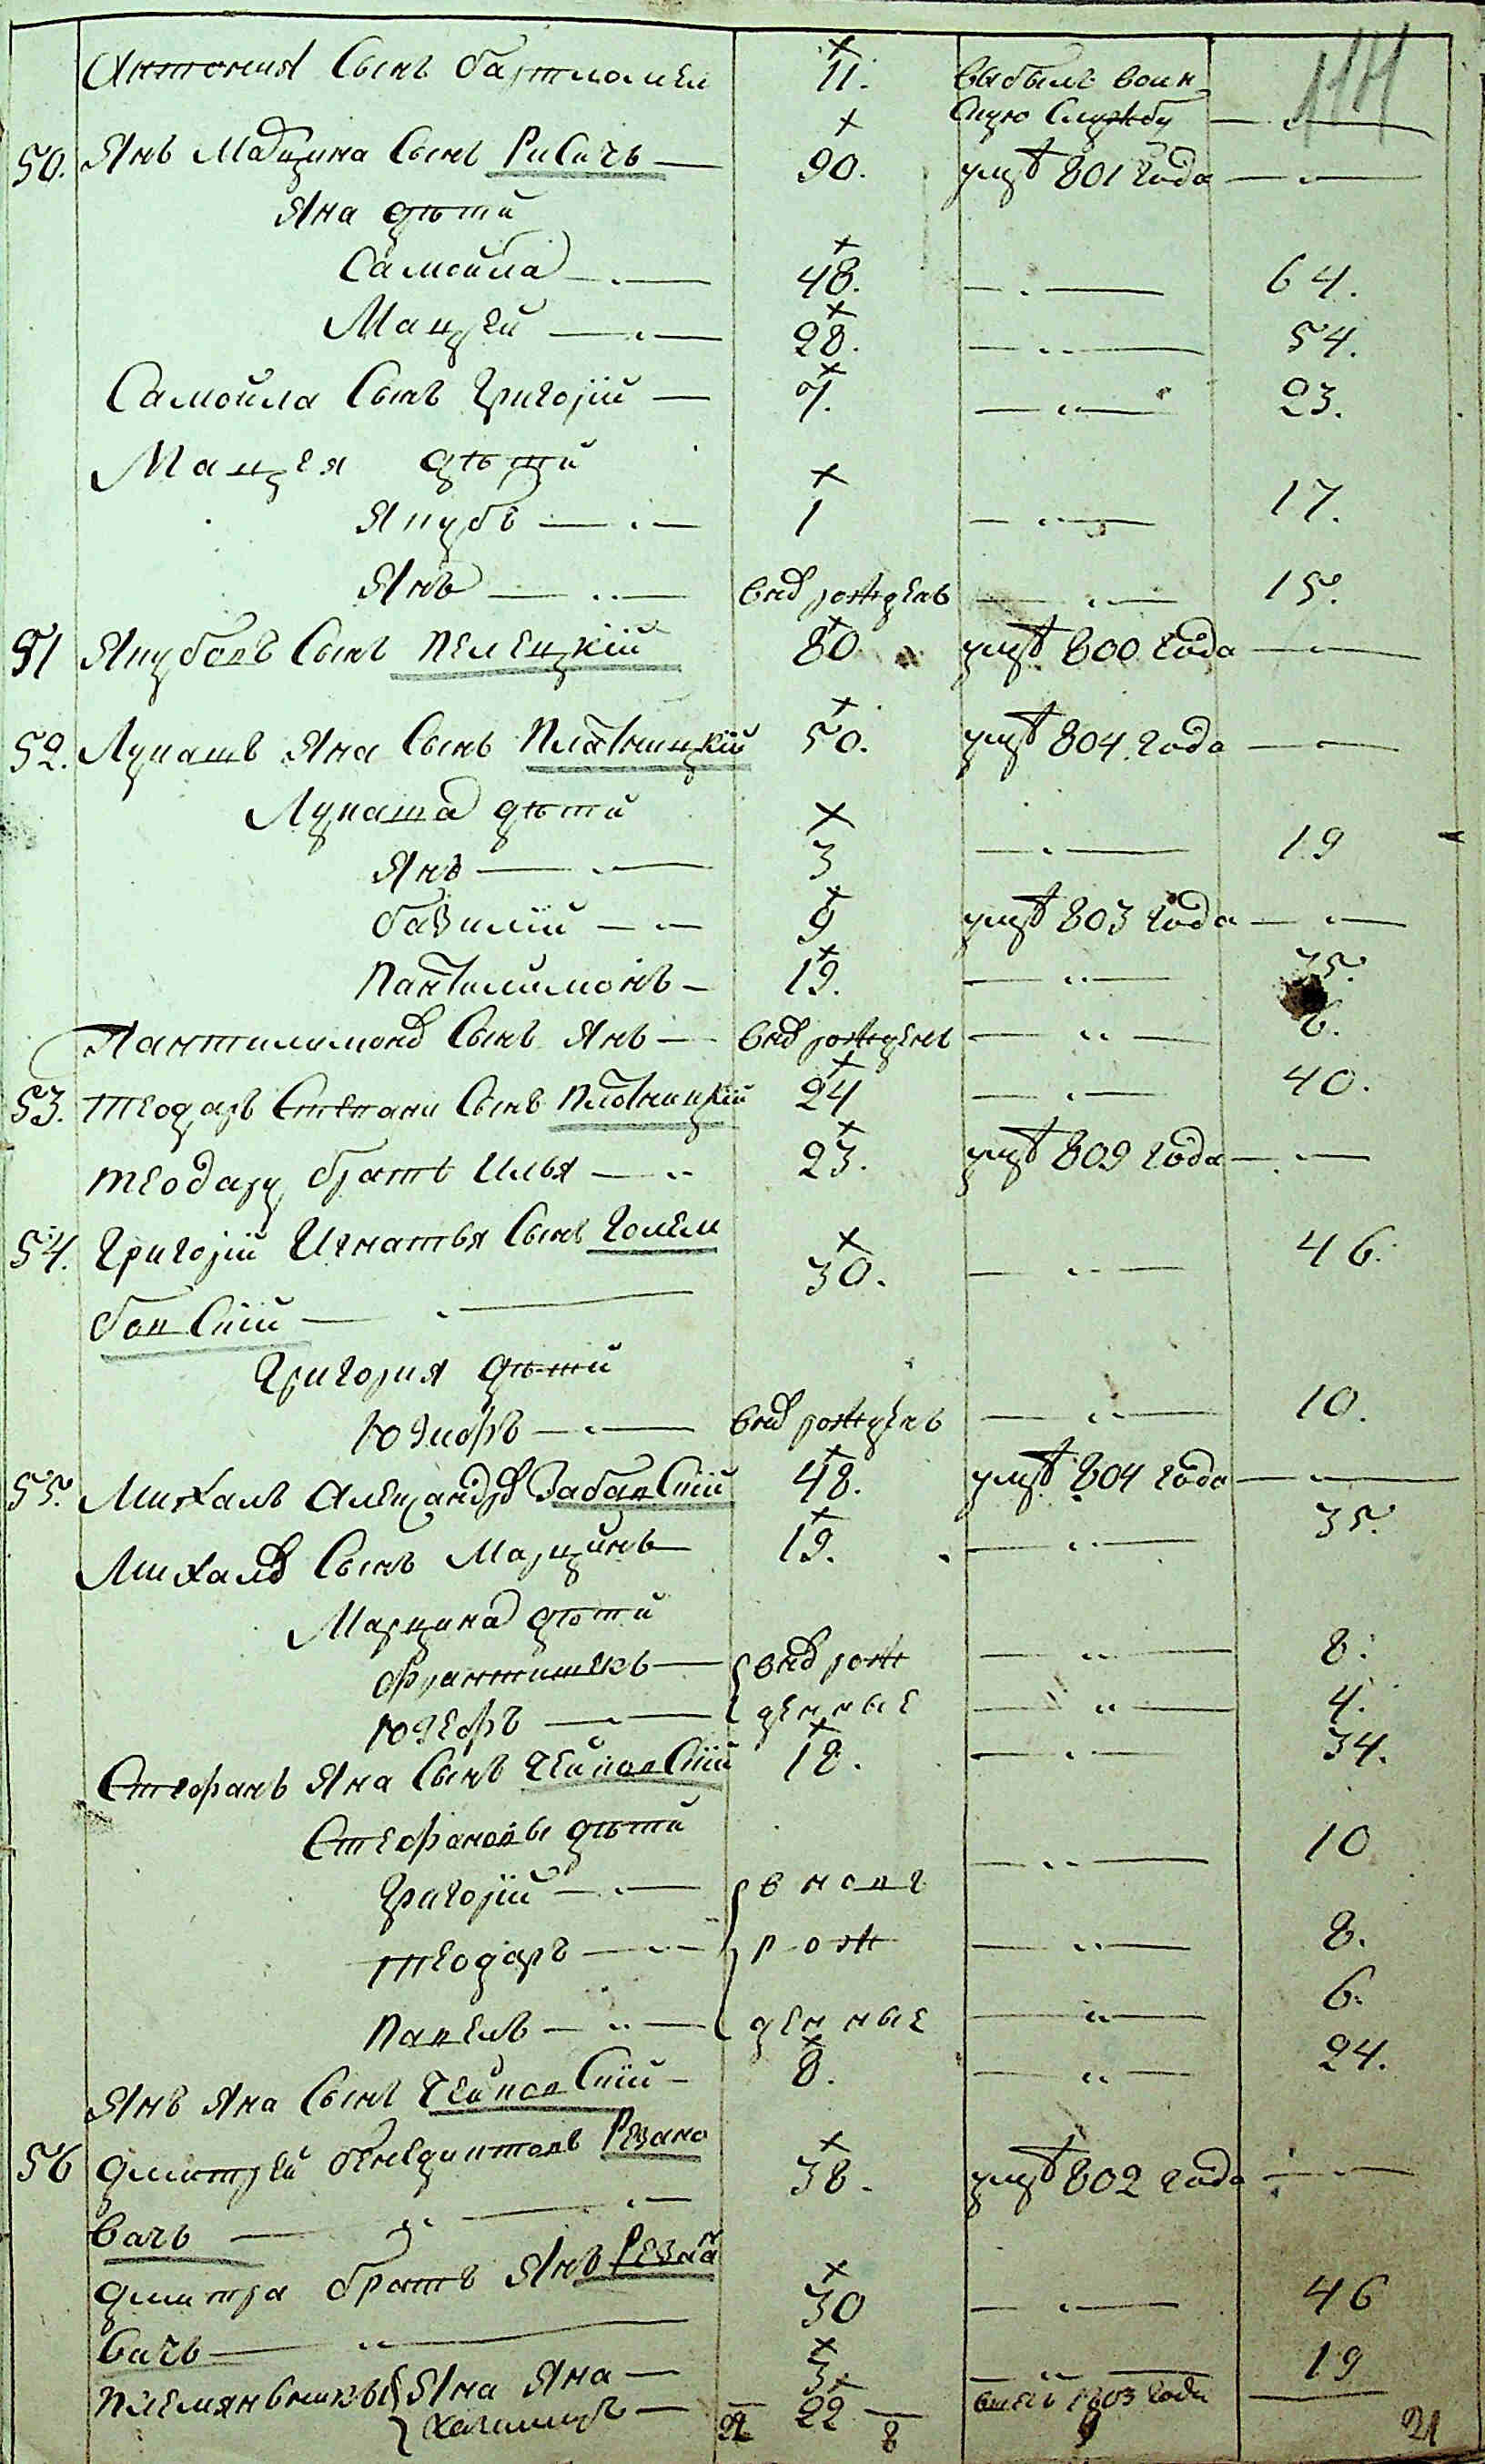 Антония Сынъ бартломей 11. выбылъ воин-
скую Службу
50. Янъ Марцина Сынъ Рисичъ 90. умре 801 года
Яна дѣти
Самойла 48. 64.
Мацѣй 28. 54.
Самойла Сынъ Григорій 7. 23.
Мацея дѣти
Якубъ 1 17.
Янъ внов рожденъ 15.
51 Якубовъ Сынъ Пелецкій 80 умре 800 года
52. Лукашъ Яна Сынъ Плотницкій 50. умре 804. года
Лукаша дѣти
Янъ 3 19
базилій 9 умре 803 года
Пантилимонъ 19. 35.
Пантилимона Сынъ Янъ внов рожденъ 6.
53. теодаръ Степана Сынъ Плотницкій 24 40.
теодару братъ Илья 23. умре 809 года
54. Григорій Игнатья Сынъ Голем
бовскій 30. 46.
Григория дѣти
Юзифъ внов рожденъ 10.
55. Михалъ Александров Забавскій 48. умре 804 года
Михала Сынъ Марцинъ 19. 35.
Марцина дѣти
франтишекъ внов рож 8.
Юзефъ денные 4.
Стефанъ Яна Сынъ Чейковскій 18. 34.
Стефановы дѣти
Григорій вновь 10
теодаръ рож 8.
Павелъ денные 6.
Янъ Яна Сынъ Чейковскій 8. 24.
56 дмитрей бенедиктовъ Резано
вачъ 38. умре 802 года
дмитра братъ Янъ Резан
вачъ 30 46
племянники Яна Яна 3. 19
Казимиръ 1803 года
22 22 8 21